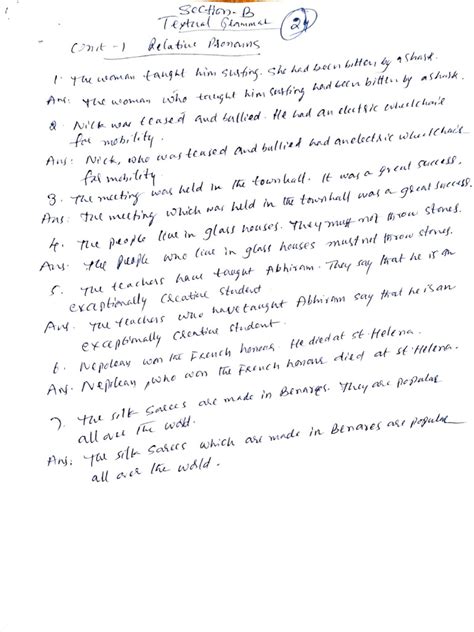 Section-B
Textual Grammar
Unit-1 Relative Pronouns
1. The woman taught him surfing. She had been bitten by a shark.
Ans: The woman who taught him surfing had been bitten by a shark.
2. Nick was teased and bullied. He had an electric wheelchair
for mobility.
Ans: Nick, who was teased and bullied had an electric wheelchair
for mobility.
3. The meeting was held in the townhall. It was a great success.
Ans: The meeting which was held in the townhall was a great success.
4. The people live in glass houses. They must not throw stones.
Ans: The people who live in glass houses must not throw stones.
5. The teachers have taught Abhiram. They say that he is an
exceptionally creative student
Ans: The teachers who have taught Abhiram say that he is an
exceptionally creative student.
6. Nepolean won the French honour. He died at st. Helena.
Ans: Nepolean, who won the French honour died at st. Helena.
7. The silk sarees are made in Benares. They are popular
all over the world.
Ans: The silk sarees which are made in Benares are popular
all over the world.